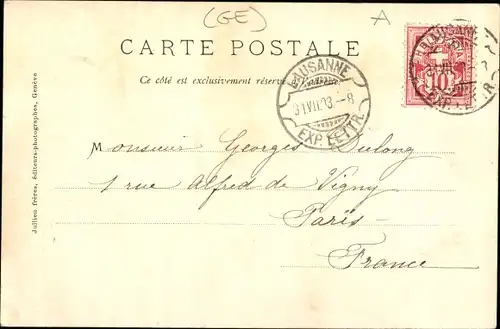 (GE)
A
CARTE POSTALE
Ce côté est exclusivement réservé
LAUSANNE
31.VII.03.-8
EXP. LETTR.
LAUSANNE
10
EXP. LETTR.
Monsieur Georges Dulong
1 rue Alfred de Vigny
Paris
France
Jullien frères, éditeurs-photographes, Genève